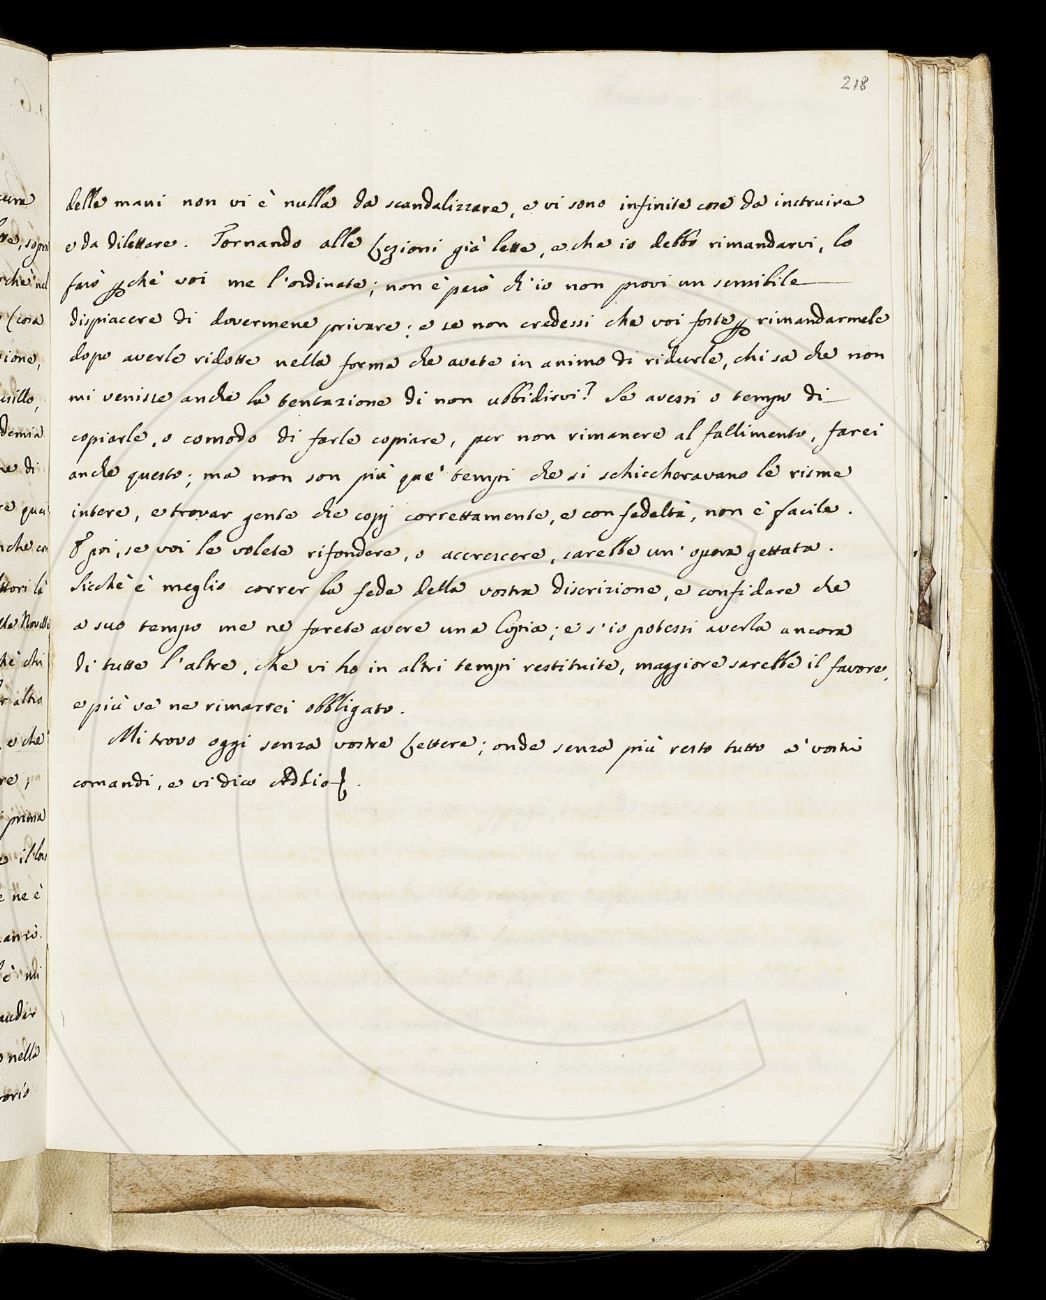 218
delle mani non vi è nulla da scandalizzare, e vi sono infinite cose da instruire
e da dilettare. Tornando alle Lezioni già lette, e che io debbo rimandarvi, lo
farò perchè voi me l'ordinate; non è però ch'io non provi un sensibile
dispiacere di dovermene privare; e se non credessi che voi foste per rimandarmele
dopo averle ridotte nella forma che avete in animo di ridurle, chi sa che non
mi venisse anche la tentazione di non ubbidirvi? Se avessi o tempo di
copiarle, o comodo di farle copiare, per non rimanere al fallimento, farei
anche questo; ma non son più que' tempi che si schiccheravano le risme
intere, e trovar gente che copj correttamente, e con fedeltà, non è facile.
E poi, se voi le volete rifondere, o accrescere, sarebbe un' opera gettata.
Sicchè è meglio correr la fede della vostra discrizione, e confidare che
a suo tempo me ne farete avere una Copia; e s'io potessi averla ancora
di tutte l'altre, che vi ho in altri tempi restituite, maggiore sarebbe il favore,
e più ve ne rimarrei obbligato.
Mi trovo oggi senza vostre Lettere; onde senza più resto tutto a' vostri
comandi, e vi dico Addio.